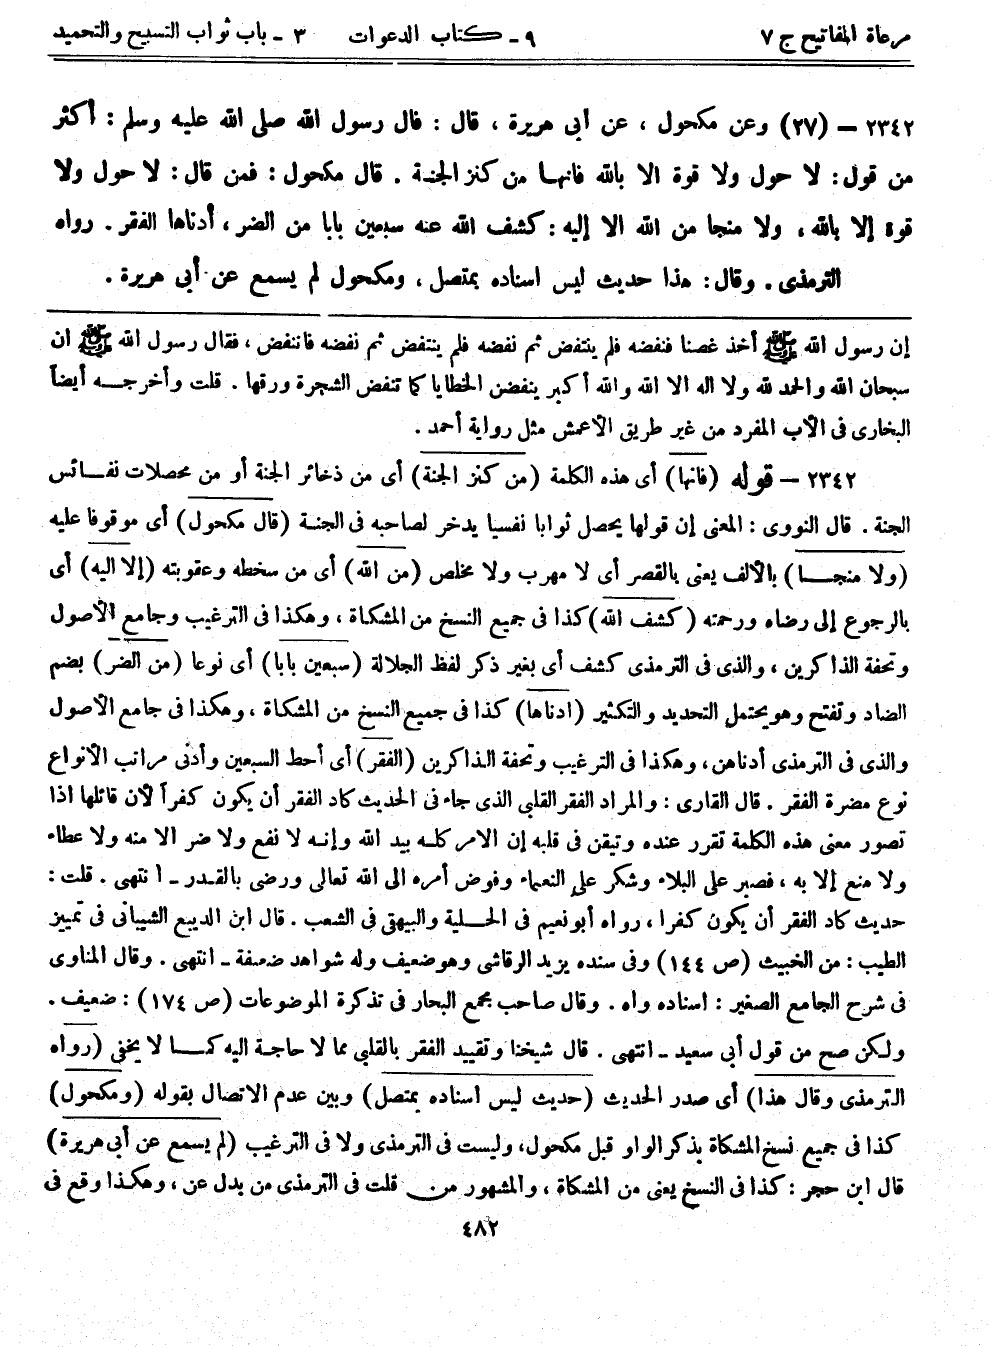 مرعاة المفاتيح ج ٧ ٩ - كتاب الدعوات ٣ - باب ثواب التسبيح والتحميد
٢٣٤٢ – (٢٧) وعن مكحول ، عن أبى هريرة ، قال : قال رسول الله صلى الله عليه وسلم : أكثر
من قول : لا حول ولا قوة الا بالله فانهـا من كنز الجنة . قال مكحول : فمن قال : لا حول ولا
قوة إلا بالله ، ولا منجا من الله الا إليه : كشف الله عنه سبعين بابا من الضر ، أدناها الفقر . رواه
الترمذى . وقال : هذا حديث ليس اسناده بمتصل ، ومكحول لم يسمع عن أبى هريرة .
إن رسول الله ﷺ أخذ غصنا فنفضه فلم ينتفض ثم نفضه فلم ينتفض ثم نفضه فانتفض ، فقال رسول الله ﷺ ان
سبحان الله والحمد لله ولا اله الا الله والله أكبر ينفضن الخطايا كما تنفض الشجرة ورقها . قلت وأخرجـه أيضاً
البخارى فى الأب المفرد من غير طريق الأعمش مثل رواية أحمد .
٢٣٤٢ – قوله (فانها) أى هذه الكلمة (من كنز الجنة) أى من ذخائر الجنة أو من محصلات نفـائس
الجنة . قال النووى : المعنى إن قولها يحصل ثوابا نفسيا يدخر لصاحبه فى الجنـة (قال مكحول) أى موقوفا عليه
(ولا منجـا) بالألف يعنى بالقصر أى لا مهرب ولا مخلص (من الله) أى من سخطه وعقوبته (إلا اليه) أى
بالرجوع إلى رضاه ورحمته (كشف الله) كذا فى جميع النسخ من المشكاة ، وهكذا فى الترغيب وجامع الأصول
وتحفة الذاكرين ، والذى فى الترمذى كشف أى بغير ذكر لفظ الجلالة (سبعين بابا) أى نوعا (من الضر) بضم
الضاد وتفتح وهو يحتمل التحديد والتكثير (ادناها) كذا فى جميع النسخ من المشكاة ، وهكذا فى جامع الأصول
والذى فى الترمذى أدناهن ، وهكذا فى الترغيب وتحفة الذاكرين (الفقر) أى أحط السبعين وأدنى مراتب الأنواع
نوع مضرة الفقر . قال القارى : والمراد الفقر القلبى الذى جاء فى الحديث كاد الفقر أن يكون كفراً لأن قائلها اذا
تصور معنى هذه الكلمة تقرر عنده وتيقن فى قلبه إن الامر كلـه بيد الله وإنـه لا نفع ولا ضر الا منه ولا عطاء
ولا منع إلا به ، فصبر على البلاء وشكر على النعماء وفوض أمره الى الله تعالى ورضى بالقـدر ـ انتهى . قلت :
حديث كاد الفقر أن يكون كفرا ، رواه أبو نعيم فى الحـلية والبيهقى فى الشعب . قال ابن الديبع الشيبانى فى تمييز
الطيب : من الخبيث (ص ١٤٤) وفى سنده يزيد الرقاشى وهو ضعيف وله شواهد ضعيفة ـ انتهى . وقال المناوى
فى شرح الجامع الصغير : اسناده واه . وقال صاحب مجمع البحار فى تذكرة الموضوعات (ص ١٧٤) : ضعيف .
ولـكن صح من قول أبى سعيد ـ انتهى . قال شيخنا وتقييد الفقر بالقلبى مما لا حاجـة اليه كـا لا يخفى (رواه
الترمذى وقال هذا) أى صدر الحديث (حديث ليس اسناده بمتصل) وبين عدم الاتصال بقوله (ومكحول)
كذا فى جميع نسخ المشكاة بذكر الواو قبل مكحول، وليست فى الترمذى ولا فى الترغيب (لم يسمع عن أبى هريرة)
قال ابن حجر : كذا فى النسخ يعنى من المشكاة ، والمشهور من قلت فى الترمذى من بدل عن ، وهكذا وقع فى
٤٨٢